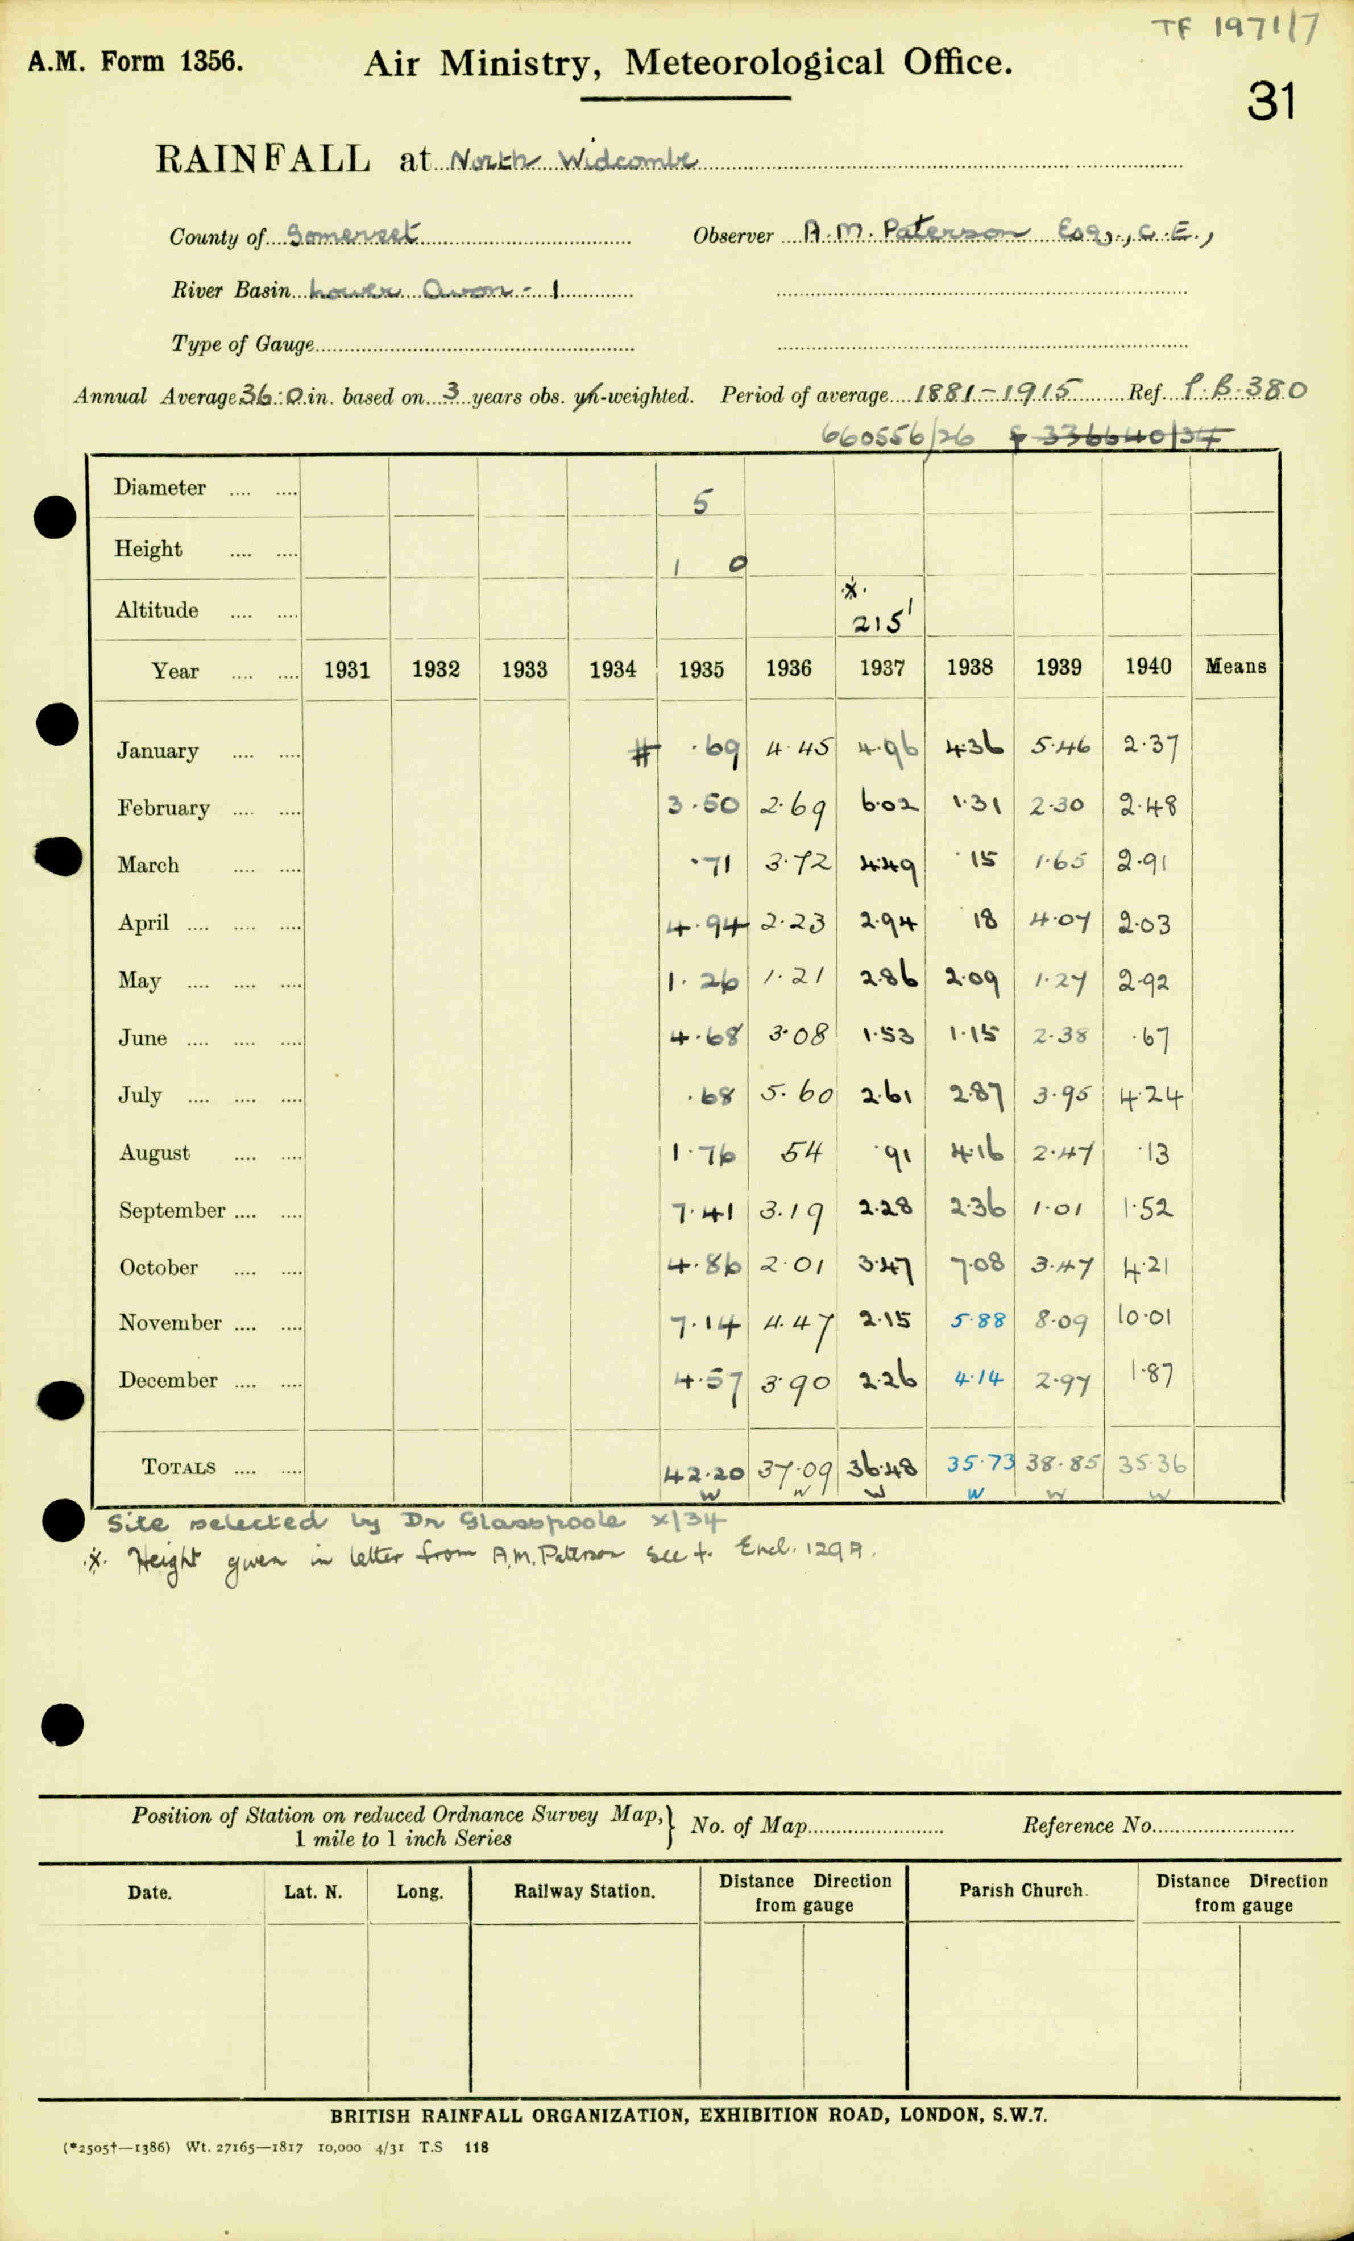 TF 1971/7
A.M. Form 1356. Air Ministry, Meteorological Office.
31
RAINFALL at North Widcombe
County of Somerset Observer A.M. Paterson Esq., C.E.,
River Basin Lower Avon - 1
Type of Gauge
Annual Average 36.0 in. based on 3 years obs. un-weighted. Period of average 1881-1915 Ref. P.B.380
660556/26 & 336640/34
Diameter 5
Height 1 0
Altitude * 215'
Year 1931 1932 1933 1934 1935 1936 1937 1938 1939 1940 Means
January # .69 4.45 4.96 4.36 5.46 2.37
February 3.50 2.69 6.02 1.31 2.30 2.48
March .71 3.72 4.49 .15 1.65 2.91
April 4.94 2.23 2.94 .18 4.07 2.03
May 1.26 1.21 2.86 2.09 1.27 2.92
June 4.68 3.08 1.53 1.15 2.38 .67
July .68 5.60 2.61 2.87 3.95 4.24
August 1.76 54 .91 4.16 2.47 .13
September 7.41 3.19 2.28 2.36 1.01 1.52
October 4.86 2.01 3.47 7.08 3.47 4.21
November 7.14 4.47 2.15 5.88 8.09 10.01
December 4.57 3.90 2.26 4.14 2.97 1.87
TOTALS 42.20 37.09 36.48 35.73 38.85 35.36
W W W W W W
Site selected by Dr Glasspoole x/34
* Height given in letter from A.M. Paterson see f. Encl. 129A.
Position of Station on reduced Ordnance Survey Map, 1 mile to 1 inch Series } No. of Map Reference No.
Date. Lat. N. Long. Railway Station. Distance Direction from gauge Parish Church. Distance Direction from gauge
BRITISH RAINFALL ORGANIZATION, EXHIBITION ROAD, LONDON, S.W.7.
(*2505†—1386) Wt. 27165—1817 10,000 4/31 T.S 118